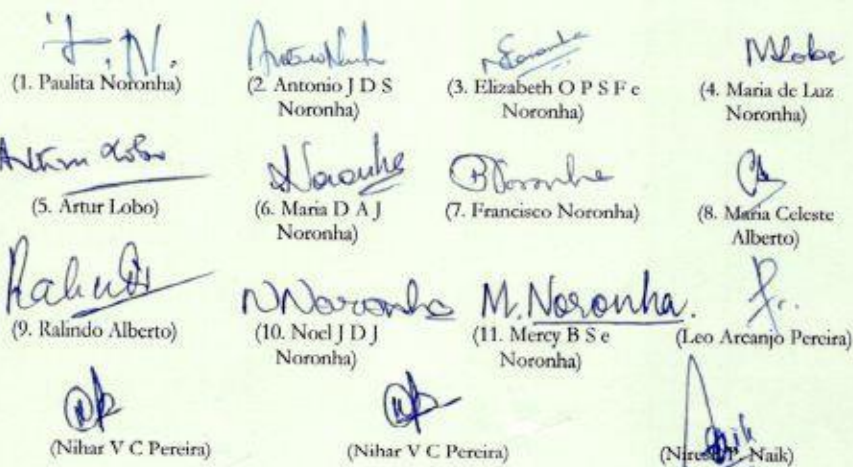 (1. Paulita Noronha)
(2. Antonio J D S
Noronha)
(3. Elizabeth O P S F e
Noronha)
MLobo
(4. Maria de Luz
Noronha)
Artur Lobo
(5. Artur Lobo)
Noronha
(6. Maria D A J
Noronha)
Noronha
(7. Francisco Noronha)
(8. Maria Celeste
Alberto)
(9. Ralindo Alberto)
NNoronha
(10. Noel J D J
Noronha)
M. Noronha.
(11. Mercy B S e
Noronha)
(Leo Arcanjo Pereira)
(Nihar V C Pereira)
(Nihar V C Pereira)
P. Naik)